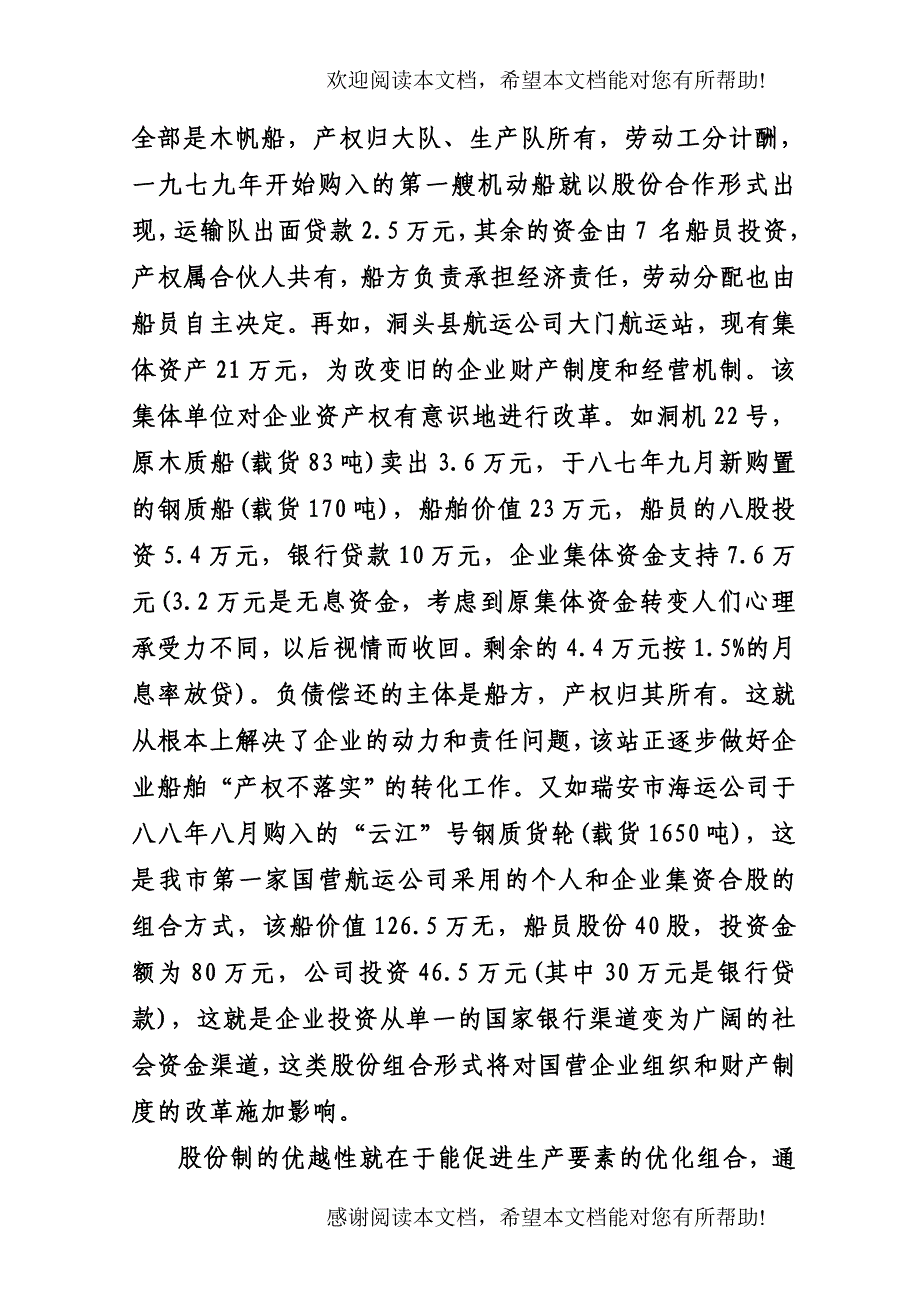 欢迎阅读本文档，希望本文档能对您有所帮助!
全部是木帆船，产权归大队、生产队所有，劳动工分计酬，
一九七九年开始购入的第一艘机动船就以股份合作形式出
现，运输队出面贷款2.5万元，其余的资金由7 名船员投资，
产权属合伙人共有，船方负责承担经济责任，劳动分配也由
船员自主决定。再如，洞头县航运公司大门航运站，现有集
体资产21万元，为改变旧的企业财产制度和经营机制。该
集体单位对企业资产权有意识地进行改革。如洞机22号，
原木质船(载货83吨)卖出3.6万元，于八七年九月新购置
的钢质船(载货170吨)，船舶价值23万元，船员的八股投
资5.4万元，银行贷款10万元，企业集体资金支持7.6万
元(3.2万元是无息资金，考虑到原集体资金转变人们心理
承受力不同，以后视情而收回。剩余的4.4万元按1.5%的月
息率放贷)。负债偿还的主体是船方，产权归其所有。这就
从根本上解决了企业的动力和责任问题，该站正逐步做好企
业船舶“产权不落实”的转化工作。又如瑞安市海运公司于
八八年八月购入的“云江”号钢质货轮(载货1650吨)，这
是我市第一家国营航运公司采用的个人和企业集资合股的
组合方式，该船价值126.5万无，船员股份40股，投资金
额为80万元，公司投资46.5万元(其中30万元是银行贷
款)，这就是企业投资从单一的国家银行渠道变为广阔的社
会资金渠道，这类股份组合形式将对国营企业组织和财产制
度的改革施加影响。
股份制的优越性就在于能促进生产要素的优化组合，通
感谢阅读本文档，希望本文档能对您有所帮助!